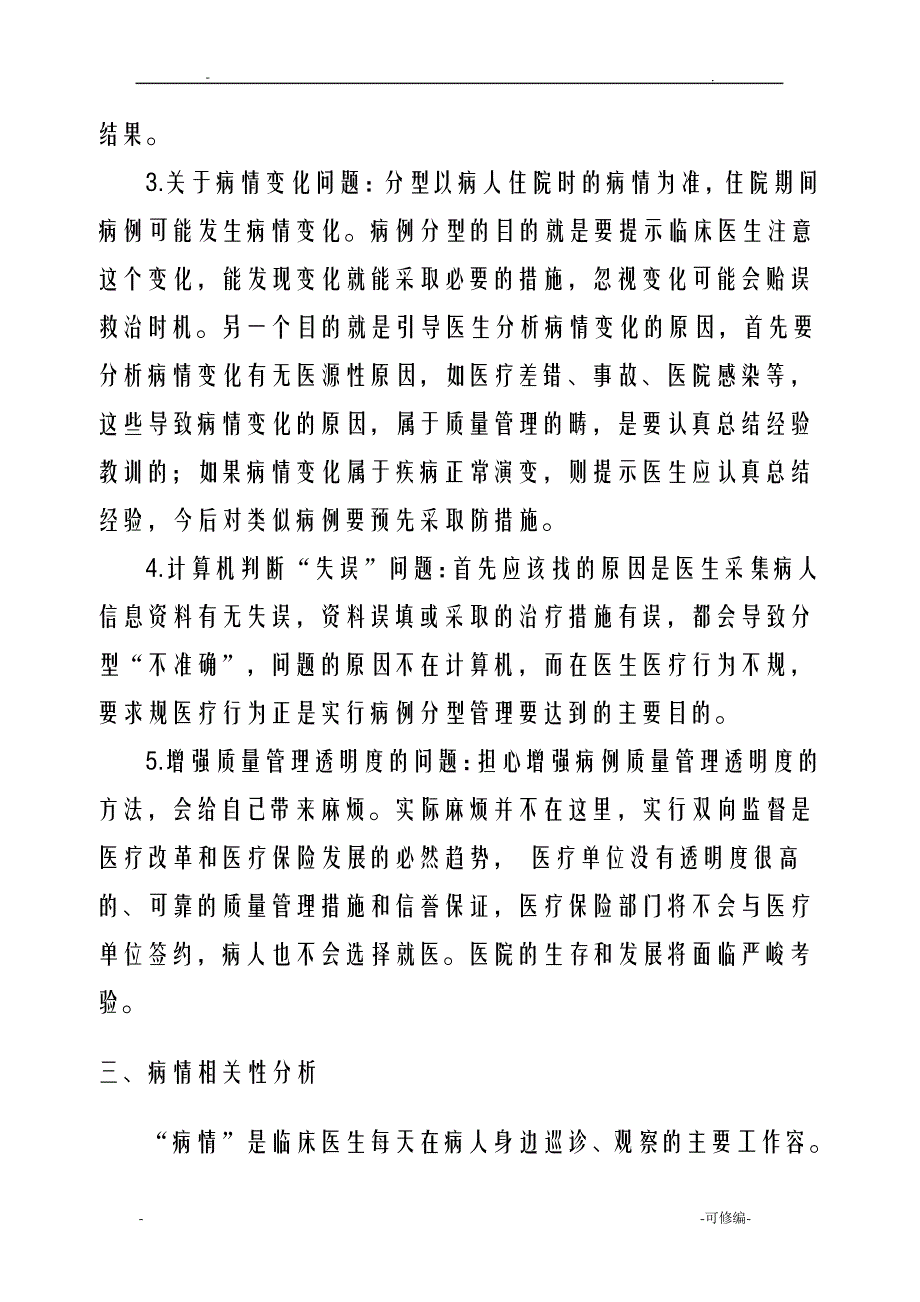 - .
结果。
3.关于病情变化问题：分型以病人住院时的病情为准，住院期间
病例可能发生病情变化。病例分型的目的就是要提示临床医生注意
这个变化，能发现变化就能采取必要的措施，忽视变化可能会贻误
救治时机。另一个目的就是引导医生分析病情变化的原因，首先要
分析病情变化有无医源性原因，如医疗差错、事故、医院感染等，
这些导致病情变化的原因，属于质量管理的畴，是要认真总结经验
教训的；如果病情变化属于疾病正常演变，则提示医生应认真总结
经验，今后对类似病例要预先采取防措施。
4.计算机判断“失误”问题：首先应该找的原因是医生采集病人
信息资料有无失误，资料误填或采取的治疗措施有误，都会导致分
型“不准确”，问题的原因不在计算机，而在医生医疗行为不规，
要求规医疗行为正是实行病例分型管理要达到的主要目的。
5.增强质量管理透明度的问题：担心增强病例质量管理透明度的
方法，会给自己带来麻烦。实际麻烦并不在这里，实行双向监督是
医疗改革和医疗保险发展的必然趋势， 医疗单位没有透明度很高
的、可靠的质量管理措施和信誉保证，医疗保险部门将不会与医疗
单位签约，病人也不会选择就医。医院的生存和发展将面临严峻考
验。
三、病情相关性分析
“病情”是临床医生每天在病人身边巡诊、观察的主要工作容。
- -可修编-